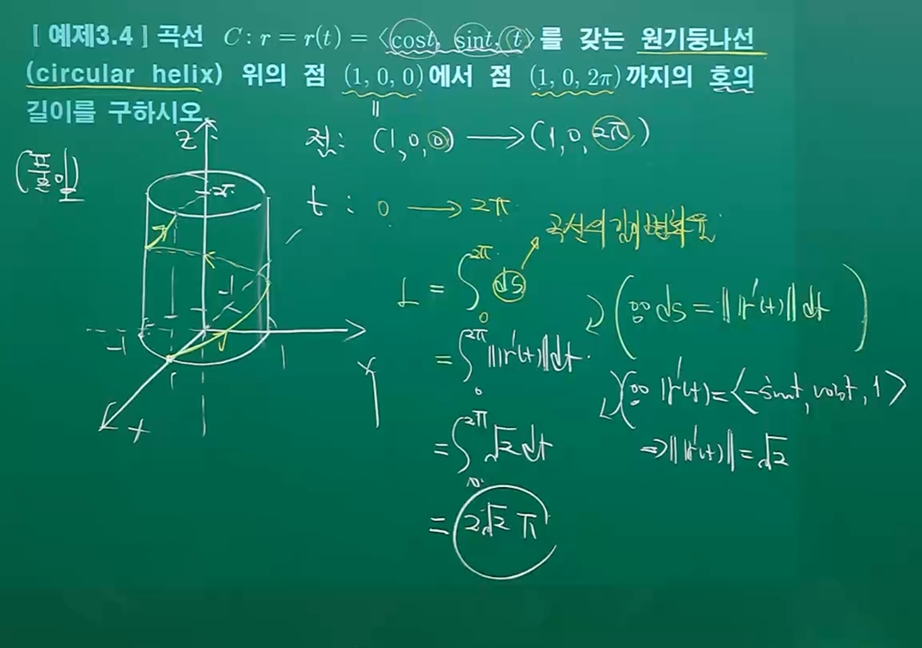 [ 예제3.4 ] 곡선 C : r = r(t) = ⟨cost, sint, t⟩를 갖는 원기둥나선
(circular helix) 위의 점 (1, 0, 0)에서 점 (1, 0, 2π)까지의 호의
길이를 구하시오.
(풀이)
점: (1, 0, 0) → (1, 0, 2π)
t : 0 → 2π
곡선의 길이변화율
L = ∫₀^2π ds
(∵ ds = ||r'(t)|| dt)
= ∫₀^2π ||r'(t)|| dt.
(∵ r'(t) = ⟨-sint, cost, 1⟩
⇒ ||r'(t)|| = √2
= ∫₀^2π √2 dt
= 2√2 π
z
2π
-1
-1
1
1
y
x